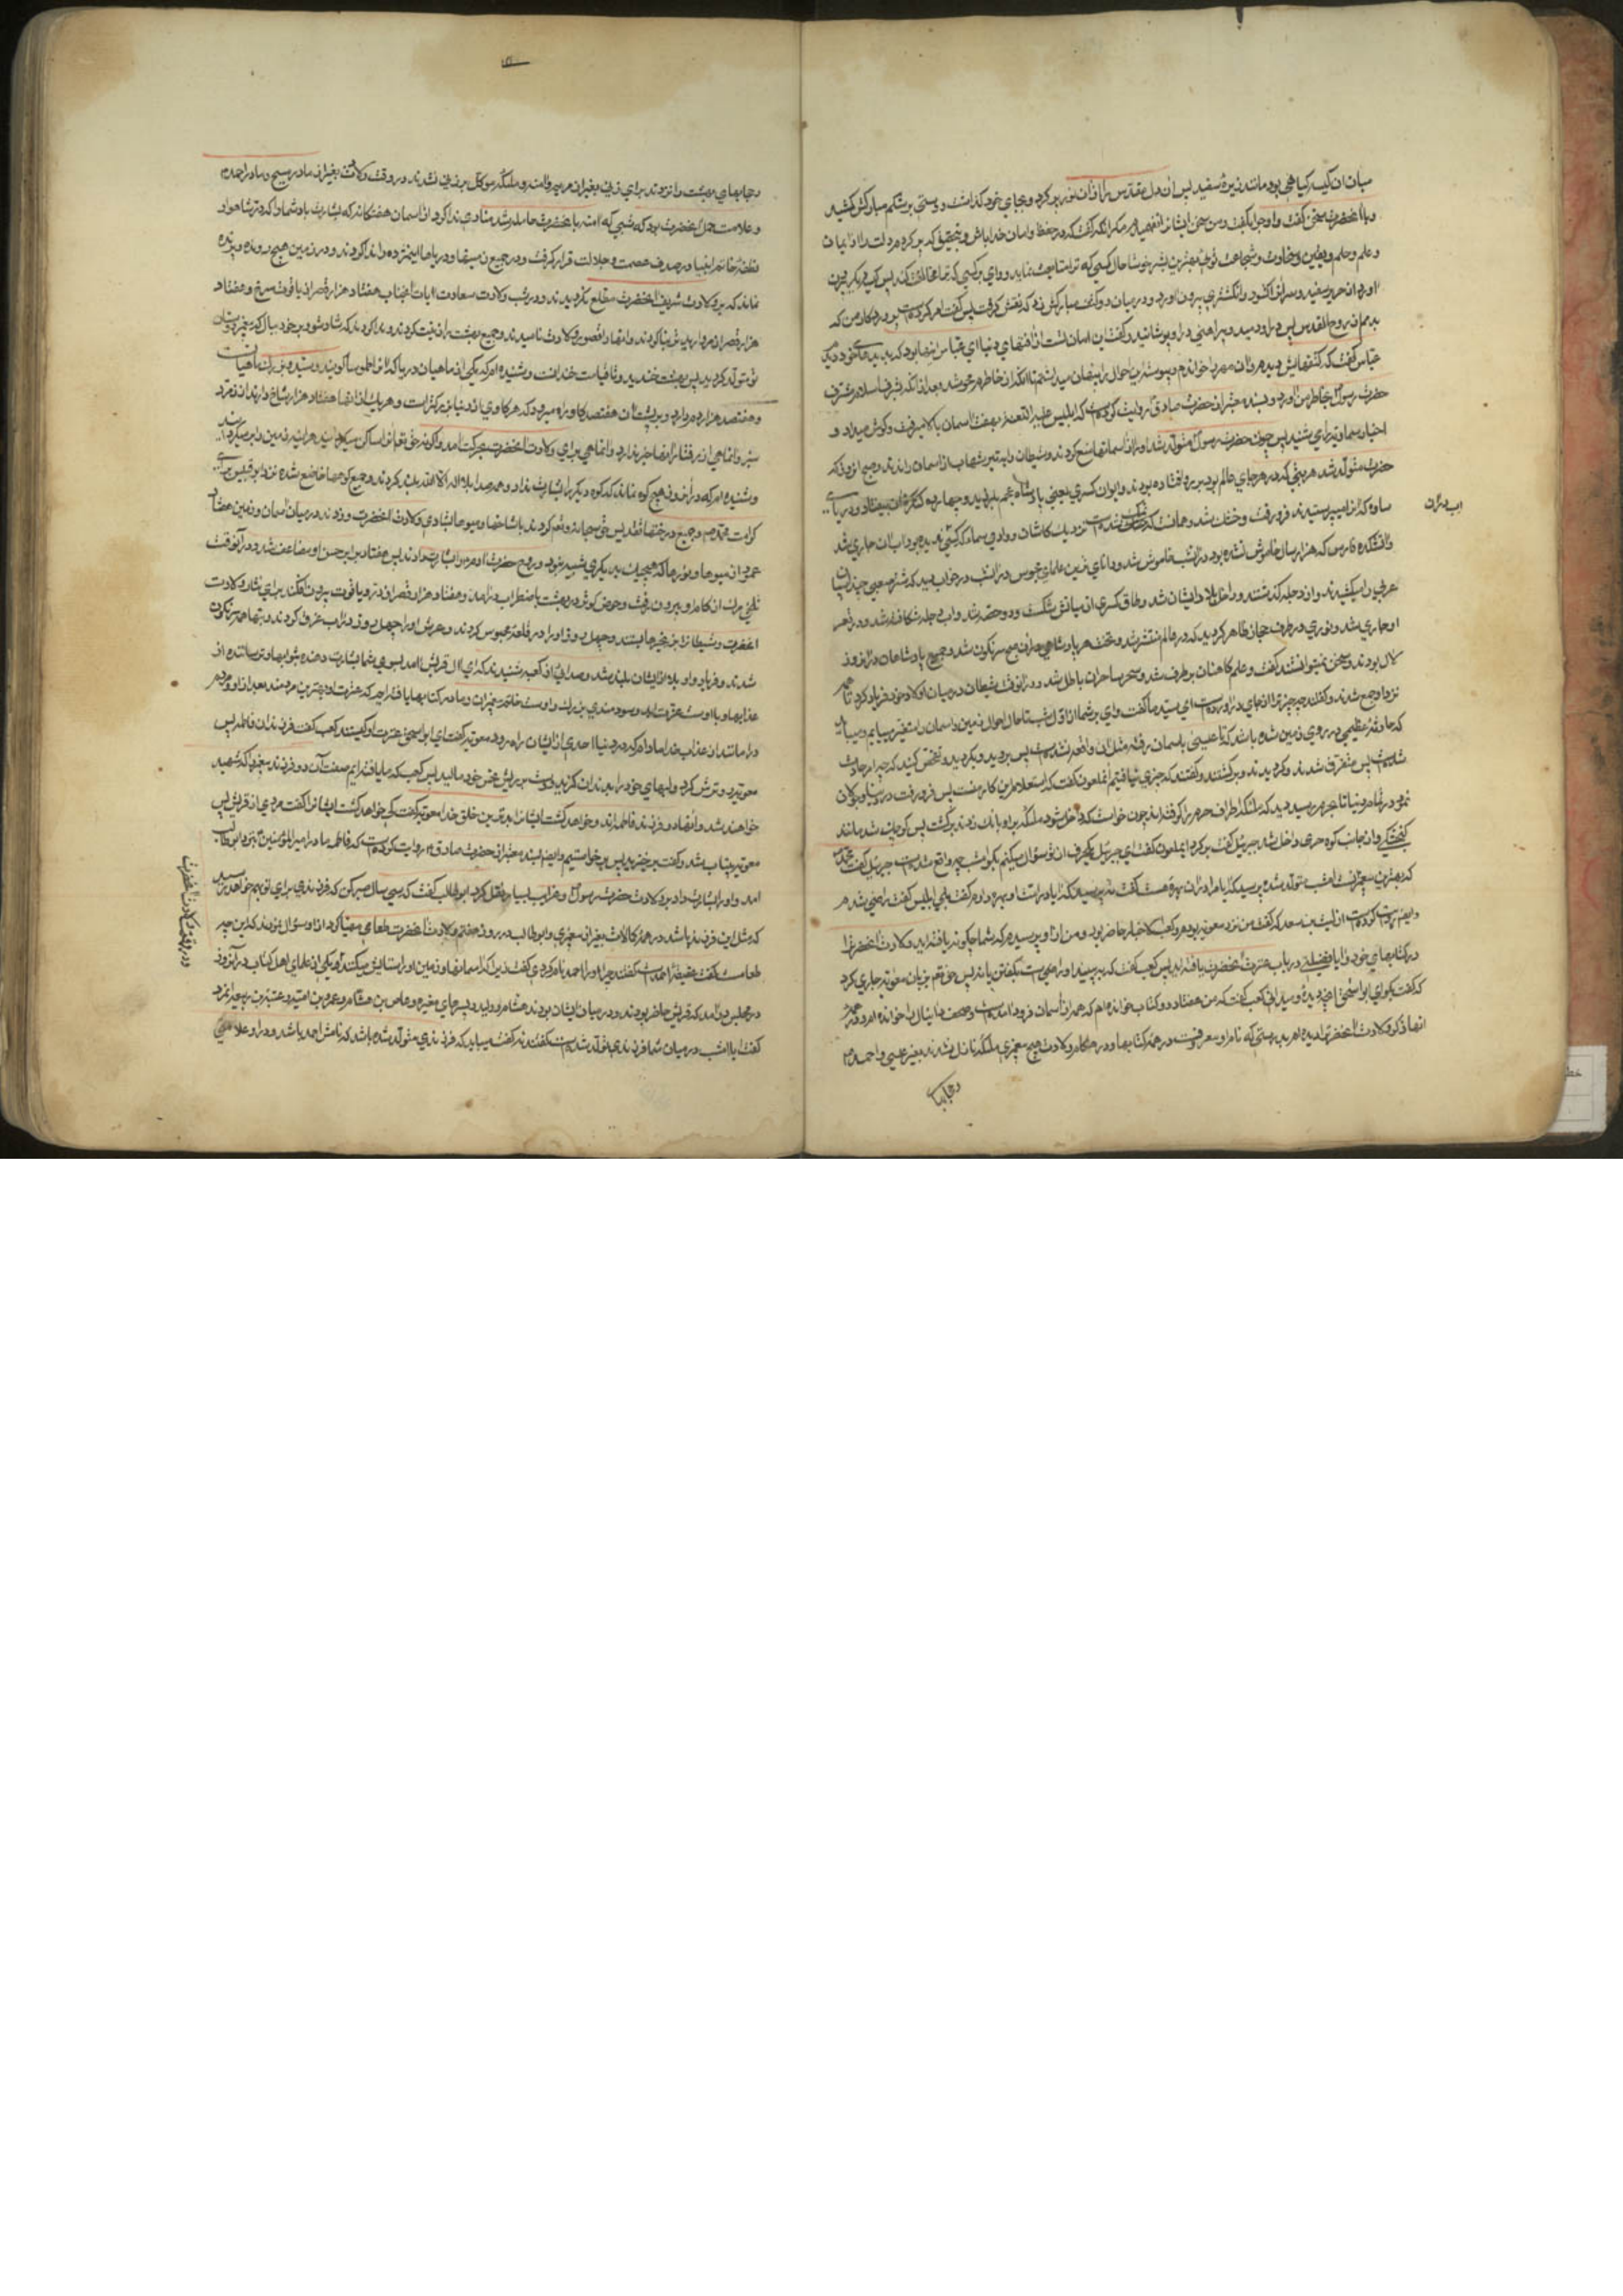 میان ان کیسه کیاهی بود مانند زیره سفید پس ان دل مقدس را از ان نور پر کرد و بجای خود کذاشت و دستی بر شکم مبارکش کشید
و با انحضرت سخن کفت و او جواب کفت و من سخن ایشانرا نفهمیدم مکر انکه کفت که در حفظ و امان خدا باش و بتحقیق که پر کردم دلت را از ایمان
و علم و حلم و یقین و سخاوت و شجاعت توئی بهترین بشر خوشا حال کسی که ترا متابعت نماید و وای بر کسی که ترا مخالفت کند پس کیسه دیکر بیرون
اورد از حریر سفید و سرش را کشود و انکشتری بیرون اورد و در میان دو کتف مبارکش زد که نقش کرفت پس کفت امر کرده است پروردکار من که
بدمم از روح القدس پس در او دمید و پیراهنی در او پوشانید و کفت این امان تست از افتهای دنیا ای عباس اینها بود که بدیده‌های خود دیدم
عباس کفت که کتفهایش دیدم و ان مهر را خواندم و پیوسته این احوال را پنهان میداشتم تا انکه از خاطرم محو شد بعد از انکه بشرف اسلام مشرف
حضرت رسول بخاطر من اورد و بسند معتبر از حضرت صادق روایت کرده است که ابلیس علیه اللعنه بهفت اسمان بالا میرفت و کوش میداد و
اخبار سماویه را می شنید پس چون حضرت رسول متولد شد او را از اسمانها منع کردند و شیاطین را به تیر شهاب از اسمان راندند و صبح انروز که
حضرت متولد شد هر بتی که در هر جای عالم بود بر رو افتاده بودند و ایوان کسری یعنی پادشاه عجم بلرزید و چهارده کنکره ان بیفتاد و دریای
ساوه که انرا میپرستیدند فرو رفت و خشک شد و همانست که نمک شده است نزدیک کاشان و وادی سماوه که کسی ندیده بود اب دران جاری شد
و اتشکده فارس که هزار سال خاموش نشده بود در انشب خاموش شد و دانای ترین علمای مجوس در انشب در خواب دید که شتر صعبی چند اسبان
عربی را میکشیدند و از دجله کذشتند و داخل بلاد ایشان شد و طاق کسری از میانش شکست و دو حصه شد و اب دجله شکافته شد و در قصر
او جاری شد و نوری در طرف حجاز ظاهر کردید که در عالم منتشر شد و تخت هر پادشاهی در ان صبح سرنکون شد و جمیع پادشاهان در انروز
لال بودند و سخن نمیتوانستند کفت و علم کاهنان برطرف شد و سحر ساحران باطل شد و در انوقت شیطان در میان اولاد خود فریاد کرد تا همه
نزد او جمع شدند و کفتند چه چیز ترا از جای دراورده است ای سید ما کفت وای بر شما از اول شب تا حال احوال زمین و اسمان را متغیر مییابم و میباید
که حادثه عظیمی در روی زمین شده باشد که تا عیسی باسمان رفته مثل ان واقع نشده است پس بروید و بکردید و تفحص کنید که چه امر حادث
شده است پس متفرق شدند و کردیدند و برکشتند و کفتند که چیزی نیافتیم انملعون کفت که استعلام این کار منست پس فرو رفت در دنیا و جولان
نمود در تمام دنیا تا بحرم رسید دید که ملئکه اطراف حرم را کرفته‌اند چون خواست که داخل شود ملئکه بر او بانک زدند برکشت پس کوچک شد مانند
کنجشکی و از جانب کوه حری داخل شد جبرئیل کفت برکرد ای ملعون کفت ای جبرئیل یکحرف از تو سؤال میکنم بکو امشب چه واقع شده است جبرئیل کفت محمد
که بهترین پیغمبرانست امشب متولد شده پرسید که ایا مرا در ان بهره هست کفت نه پرسید که ایا در امت او بهره دارم کفت بلی ابلیس کفت راضی شدم
و ایضا روایت کرده است از لیث بن سعد که کفت من نزد معویه بودم و کعب الاحبار حاضر بود و من از او پرسیدم که شما چکونه یافته‌اید ولادت انحضرت را
در کتابهای خود و ایا فضیلتی در باب عترت انحضرت یافته‌اید پس کعب کفت
که کفت بکو ای ابو اسحق انچه دیده و میدانی کعب کفت که من هفتاد و دو کتاب خوانده‌ام که همه از اسمان فرود امده است و صحف دانیال را خوانده‌ام و در همه
انها ذکر ولادت انحضرت را دیده‌ام بدرستی که نام او معروفست در همه کتابها و در هنکام ولادت هیچ پیغمبری ملئکه نازل نشدند بغیر عیسی و احمد
و حجابهای
و حجابهای بهشت را نزدند برای زنی بغیر از مریم و امنه و ملئکه موکل بر زنی نشدند در وقت ولادت بغیر از مادر مسیح و مادر احمد
و علامت حمل انحضرت ان بود که شبی که امنه بانحضرت حامله شد منادی ندا کرد در اسمان هفتکانه که بشارت باد شما را که در شاهوار
نطفه خاتم انبیا در صدف عصمت و جلالت قرار کرفت و در جمیع زمینها و دریاها این مژده را ندا کردند و در زمین هیچ رونده و پرنده
نماند که بر ولادت شریف انحضرت مطلع نکردیدند و در شب ولادت سعادت ایات انجناب هفتاد هزار قصر از یاقوت سرخ و هفتاد
هزار قصر از مروارید تر بنا کردند و انها را قصور ولادت نامیدند و جمیع بهشتها را زینت کردند و ندا کردند که شاد شو و بر خود ببال که پیغمبر دوستان
تو متولد کردید پس بهشت خندید و تا قیامت خندانست و شنیده‌ام که یکی از ماهیان دریا که انرا طموسا کویند و سید و بزرک ماهیانست
و هفتصد هزار دم دارد و بر پشت ان هفتصد کاو راه میرود که هر کاوی از دنیا بزرکتر است و هر یک از انها هفتاد هزار شاخ دارند از زمرد
سبز و انماهی از رفتار انها خبر ندارد و انماهی برای ولادت انحضرت بحرکت امد و اکر نه حق تعالی انرا ساکن میکردانید هرآینه زمین را برمیکردانید
و شنیده‌ام که در انروز هیچ کوه نماند که کوه دیکر را بشارت نداد و همه صدا بلا اله الا الله بلند کردند و جمیع کوهها خاضع شدند نزد ابوقبیس برای
کرامت محمد و جمیع درختها تقدیس حق سبحانه و تعالی کردند با شاخها و میوه‌ها بشادی ولادت انحضرت و زدند در میان اسمان و زمین هفتاد
عمود از انواع نورها که هیچیک بدیکری شبیه نبود و روح حضرت ادم را بشارت دادند پس هفتاد برابر حسن او مضاعف شد و در انوقت
تلخی مرک از کام او بیرون رفت و حوض کوثر در بهشت باضطراب درامد و هفتاد هزار قصر از در و یاقوت بیرون افکند برای نثار ولادت
انحضرت و شیطان را بزنجیرها بستند و چهل روز او را در قلعه محبوس کردند و عرش او را چهل روز در اب غرق کردند و بتها همه سرنکون
شدند و فریاد واویلا از ایشان بلند شد و صدائی از کعبه شنیدند که ای ال قریش امد بسوی شما بشارت دهنده بثوابها و ترساننده از
عذابها و با اوست عزت ابد و سودمندی بزرک و اوست خاتم پیغمبران و ما در کتابها یافته‌ایم که عترت او بهترین مردمند بعد از او و مردم
در امانند از عذاب خدا مادام که در دنیا احدی از ایشان راه رود معویه کفت ای ابو اسحق عترت او کیستند کعب کفت فرزندان فاطمه پس
معویه رو ترش کرد و لبهای خود را بدندان کزید و دست بر ریش نحس خود مالید پس کعب کفت که ما یافته‌ایم صفت ان دو فرزند پیغمبر را که شهید
خواهند شد و انها دو فرزند فاطمه‌اند و خواهد کشت ایشانرا بدترین خلق خدا معویه کفت کی خواهد کشت ایشانرا کفت مردی از قریش پس
معویه بیتاب شد و کفت برخیزید پس برخواستیم و ایضا بسند معتبر از حضرت صادق روایت کرده است که فاطمه مادر امیر المؤمنین نزد ابوطالب
امد و او را بشارت داد بولادت حضرت رسول و غرایب بسیار نقل کرد ابوطالب کفت که سی سال صبر کن که فرزندی برای تو بهم خواهد رسید
که مثل این فرزند باشد در همه کمالات بغیر از پیغمبری و ابوطالب در روز هفتم ولادت انحضرت طعامی مهیا کرد از او سؤال نمودند که این چه
طعامست کفت عقیقه احمد است کفتند چرا او را احمد نام کردی کفت زیرا که اسمانها و زمین او را ستایش میکنند و یکی از علمای اهل کتاب در انروز
در مجلس درامد که قریش حاضر بودند و در میان ایشان بودند هشام و ولید پسرهای مغیره و عاص بن هشام و عمرو بن امیه و عتبه بن ربیعه
کفت ایا امشب در میان شما فرزندی متولد شده است کفتند نه کفت میباید که فرزندی متولد شده باشد که نامش احمد باشد و در او علامتی
در وقایع ولادت انحضرت